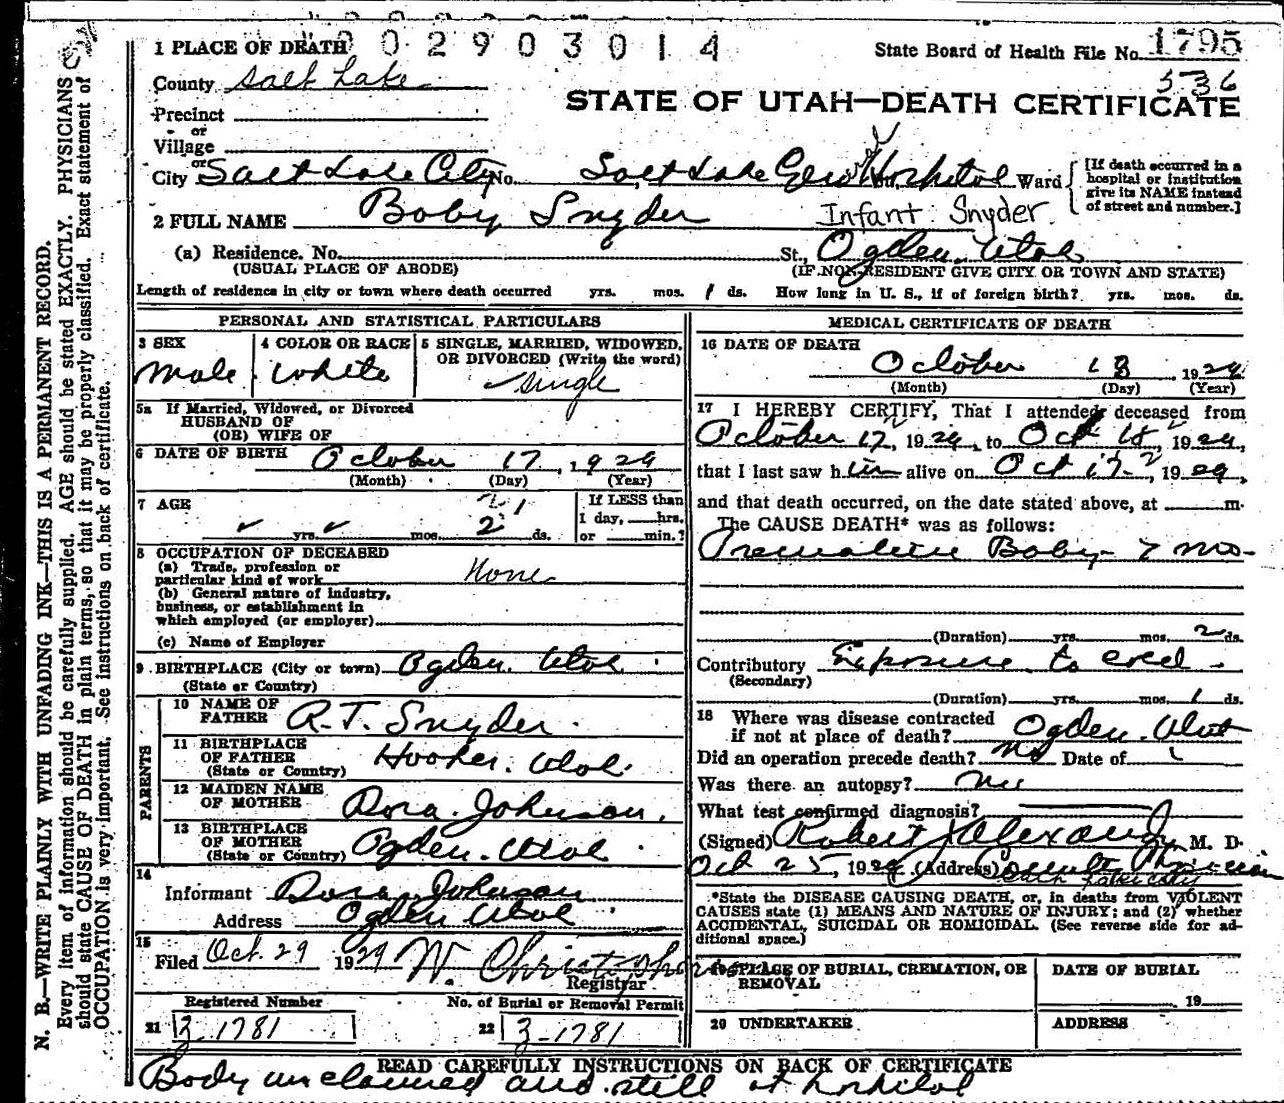 002903014
1 PLACE OF DEATH
State Board of Health File No. 1795
536
County Salt Lake
STATE OF UTAH—DEATH CERTIFICATE
Precinct
or
Village
or
City Salt Lake City No. Salt Lake Gen Hospital Ward
[If death occurred in a hospital or institution give its NAME instead of street and number.]
2 FULL NAME Baby Snyder Infant Snyder
(a) Residence. No. St., Ogden, Utah
(USUAL PLACE OF ABODE) (IF NON-RESIDENT GIVE CITY OR TOWN AND STATE)
Length of residence in city or town where death occurred yrs. mos. 1 ds. How long in U. S., if of foreign birth? yrs. mos. ds.
PERSONAL AND STATISTICAL PARTICULARS
3 SEX Male
4 COLOR OR RACE White
5 SINGLE, MARRIED, WIDOWED, OR DIVORCED (Write the word) Single
5a If Married, Widowed, or Divorced
HUSBAND OF
(OR) WIFE OF
6 DATE OF BIRTH October 17, 1929
(Month) (Day) (Year)
7 AGE yrs. mos. 2 ds.
If LESS than
1 day, hrs.
or min.?
8 OCCUPATION OF DECEASED
(a) Trade, profession or
particular kind of work None
(b) General nature of industry,
business, or establishment in
which employed (or employer)
(c) Name of Employer
9 BIRTHPLACE (City or town) Ogden, Utah
(State or Country)
PARENTS
10 NAME OF FATHER R.T. Snyder
11 BIRTHPLACE OF FATHER Hooper, Utah
(State or Country)
12 MAIDEN NAME OF MOTHER Dora Johnson
13 BIRTHPLACE OF MOTHER Ogden, Utah
(State or Country)
14
Informant Dora Johnson
Address Ogden Utah
15
Filed Oct. 29 1929 W. Christopherson
Registrar
Registered Number No. of Burial or Removal Permit
21 3-1781 22 3-1781
MEDICAL CERTIFICATE OF DEATH
16 DATE OF DEATH
October 18, 1929
(Month) (Day) (Year)
17 I HEREBY CERTIFY, That I attended deceased from
October 17, 1929, to Oct 18, 1929,
that I last saw him alive on Oct 17, 1929,
and that death occurred, on the date stated above, at m.
The CAUSE DEATH* was as follows:
Premature Baby 7 mo
(Duration) yrs. mos. 2 ds.
Contributory Exposure to cold
(Secondary)
(Duration) yrs. mos. 1 ds.
18 Where was disease contracted
if not at place of death? Ogden, Utah
Did an operation precede death? no Date of
Was there an autopsy? no
What test confirmed diagnosis?
(Signed) Robert Alexander, M. D.
Oct 25, 1929 (Address) County Physician
Salt Lake City
*State the DISEASE CAUSING DEATH, or, in deaths from VIOLENT
CAUSES state (1) MEANS AND NATURE OF INJURY; and (2) whether
ACCIDENTAL, SUICIDAL OR HOMICIDAL. (See reverse side for ad-
ditional space.)
19 PLACE OF BURIAL, CREMATION, OR REMOVAL
DATE OF BURIAL
19
20 UNDERTAKER
ADDRESS
READ CAREFULLY INSTRUCTIONS ON BACK OF CERTIFICATE
Body unclaimed and still at hospital
N. B.—WRITE PLAINLY WITH UNFADING INK—THIS IS A PERMANENT RECORD.
Every item of information should be carefully supplied. AGE should be stated EXACTLY. PHYSICIANS
should state CAUSE OF DEATH in plain terms, so that it may be properly classified. Exact statement of
OCCUPATION is very important. See instructions on back of certificate.